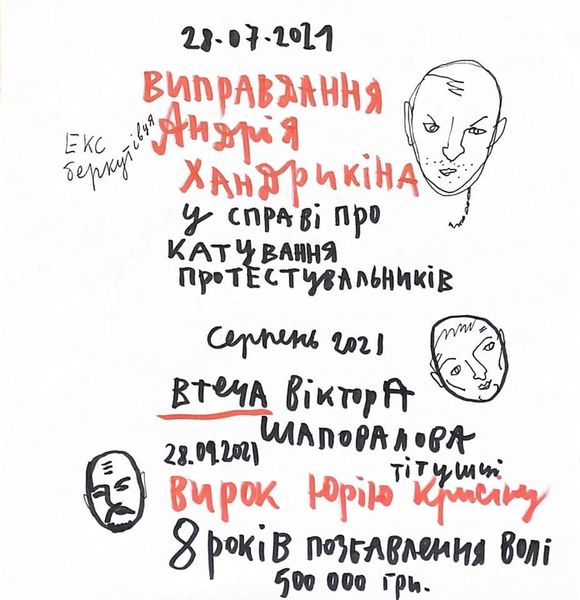 28.07.2021
ВИПРАВДАННЯ
ЕКС беркутівця АНДРІЯ
ХАНДРИКІНА
У СПРАВІ ПРО
КАТУВАННЯ
ПРОТЕСТУВАЛЬНИКІВ
Серпень 2021
ВТЕЧА ВІКТОРА
ШАПОВАЛОВА
28.09.2021
тітушці
ВИРОК Юрію Крисіну
8 років позбавлення волі
500 000 грн.